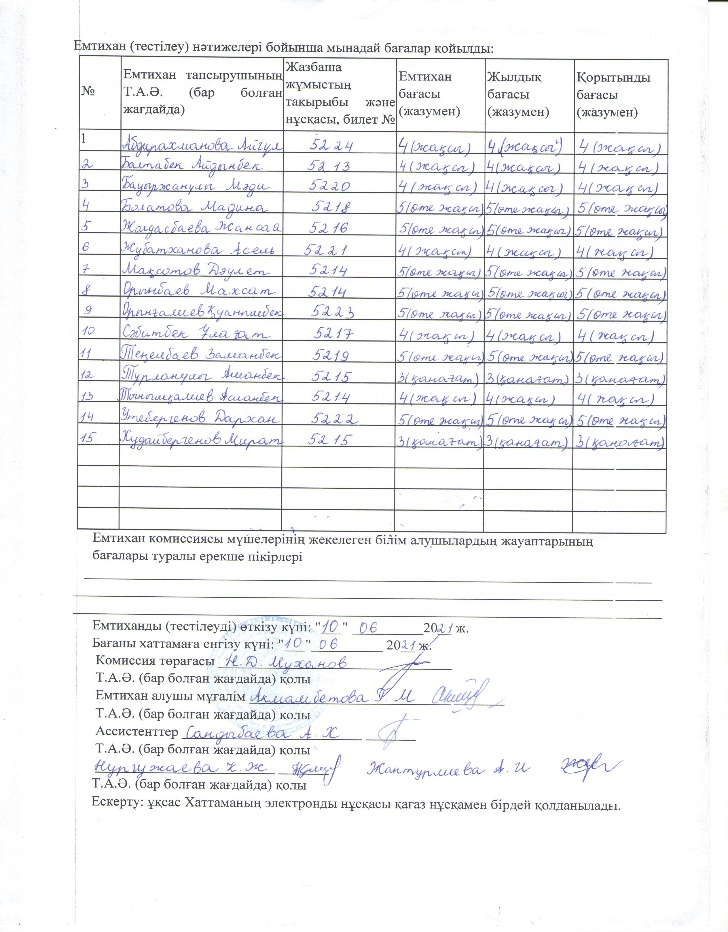 Емтихан (тестілеу) нәтижелері бойынша мынадай бағалар қойылды:
№ Емтихан тапсырушының Т.А.Ә. (бар болған жағдайда) Жазбаша жұмыстың тақырыбы және нұсқасы, билет № Емтихан бағасы (жазумен) Жылдық бағасы (жазумен) Қорытынды бағасы (жазумен)
1 Абдурахманова Айгул 5224 4(жақсы) 4(жақсы) 4(жақсы)
2 Балтабек Айдынбек 5213 4(жақсы) 4(жақсы) 4(жақсы)
3 Бауыржанұлы Мәди 5220 4(жақсы) 4(жақсы) 4(жақсы)
4 Болатова Мадина 5218 5(өте жақсы) 5(өте жақсы) 5(өте жақсы)
5 Жолдасбаева Жансая 5216 5(өте жақсы) 5(өте жақсы) 5(өте жақсы)
6 Жубатханова Асель 5221 4(жақсы) 4(жақсы) 4(жақсы)
7 Мақсотов Дәулет 5214 5(өте жақсы) 5(өте жақсы) 5(өте жақсы)
8 Орынбаев Махсат 5214 5(өте жақсы) 5(өте жақсы) 5(өте жақсы)
9 Орынғалиев Қуанышбек 5223 5(өте жақсы) 5(өте жақсы) 5(өте жақсы)
10 Сәбитбек Ұлағат 5217 4(жақсы) 4(жақсы) 4(жақсы)
11 Теңелбаев Заманбек 5219 5(өте жақсы) 5(өте жақсы) 5(өте жақсы)
12 Тұрланұлы Аманбек 5215 3(қанағат) 3(қанағат) 3(қанағат)
13 Тынышқалиев Асланбек 5214 4(жақсы) 4(жақсы) 4(жақсы)
14 Утебергенов Дархан 5222 5(өте жақсы) 5(өте жақсы) 5(өте жақсы)
15 Худайбергенов Мират 5215 3(қанағат) 3(қанағат) 3(қанағат)
Емтихан комиссиясы мүшелерінің жекелеген білім алушылардың жауаптарының
бағалары туралы ерекше пікірлері
Емтиханды (тестілеуді) өткізу күні: "10" 06 2021 ж.
Бағаны хаттамаға енгізу күні: "10" 06 2021 ж.
Комиссия төрағасы Н.Д. Муханов
Т.А.Ә. (бар болған жағдайда) қолы
Емтихан алушы мұғалім Акмамбетова Г М
Т.А.Ә. (бар болған жағдайда) қолы
Ассистенттер Сандыбаева А. Х
Т.А.Ә. (бар болған жағдайда) қолы
Нургужаева К. Ж Жантурлиева А. И
Т.А.Ә. (бар болған жағдайда) қолы
Ескерту: ұқсас Хаттаманың электронды нұсқасы қағаз нұсқамен бірдей қолданылады.